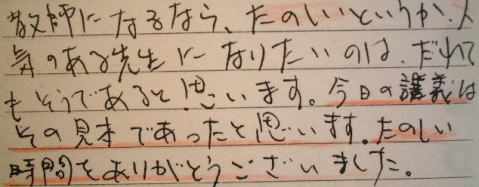 教師になるなら、たのしいというか、人
気のある先生になりたいのは、だれで
もそうであると思います。今日の講義は
その見本であったと思います。たのしい
時間をありがとうございました。